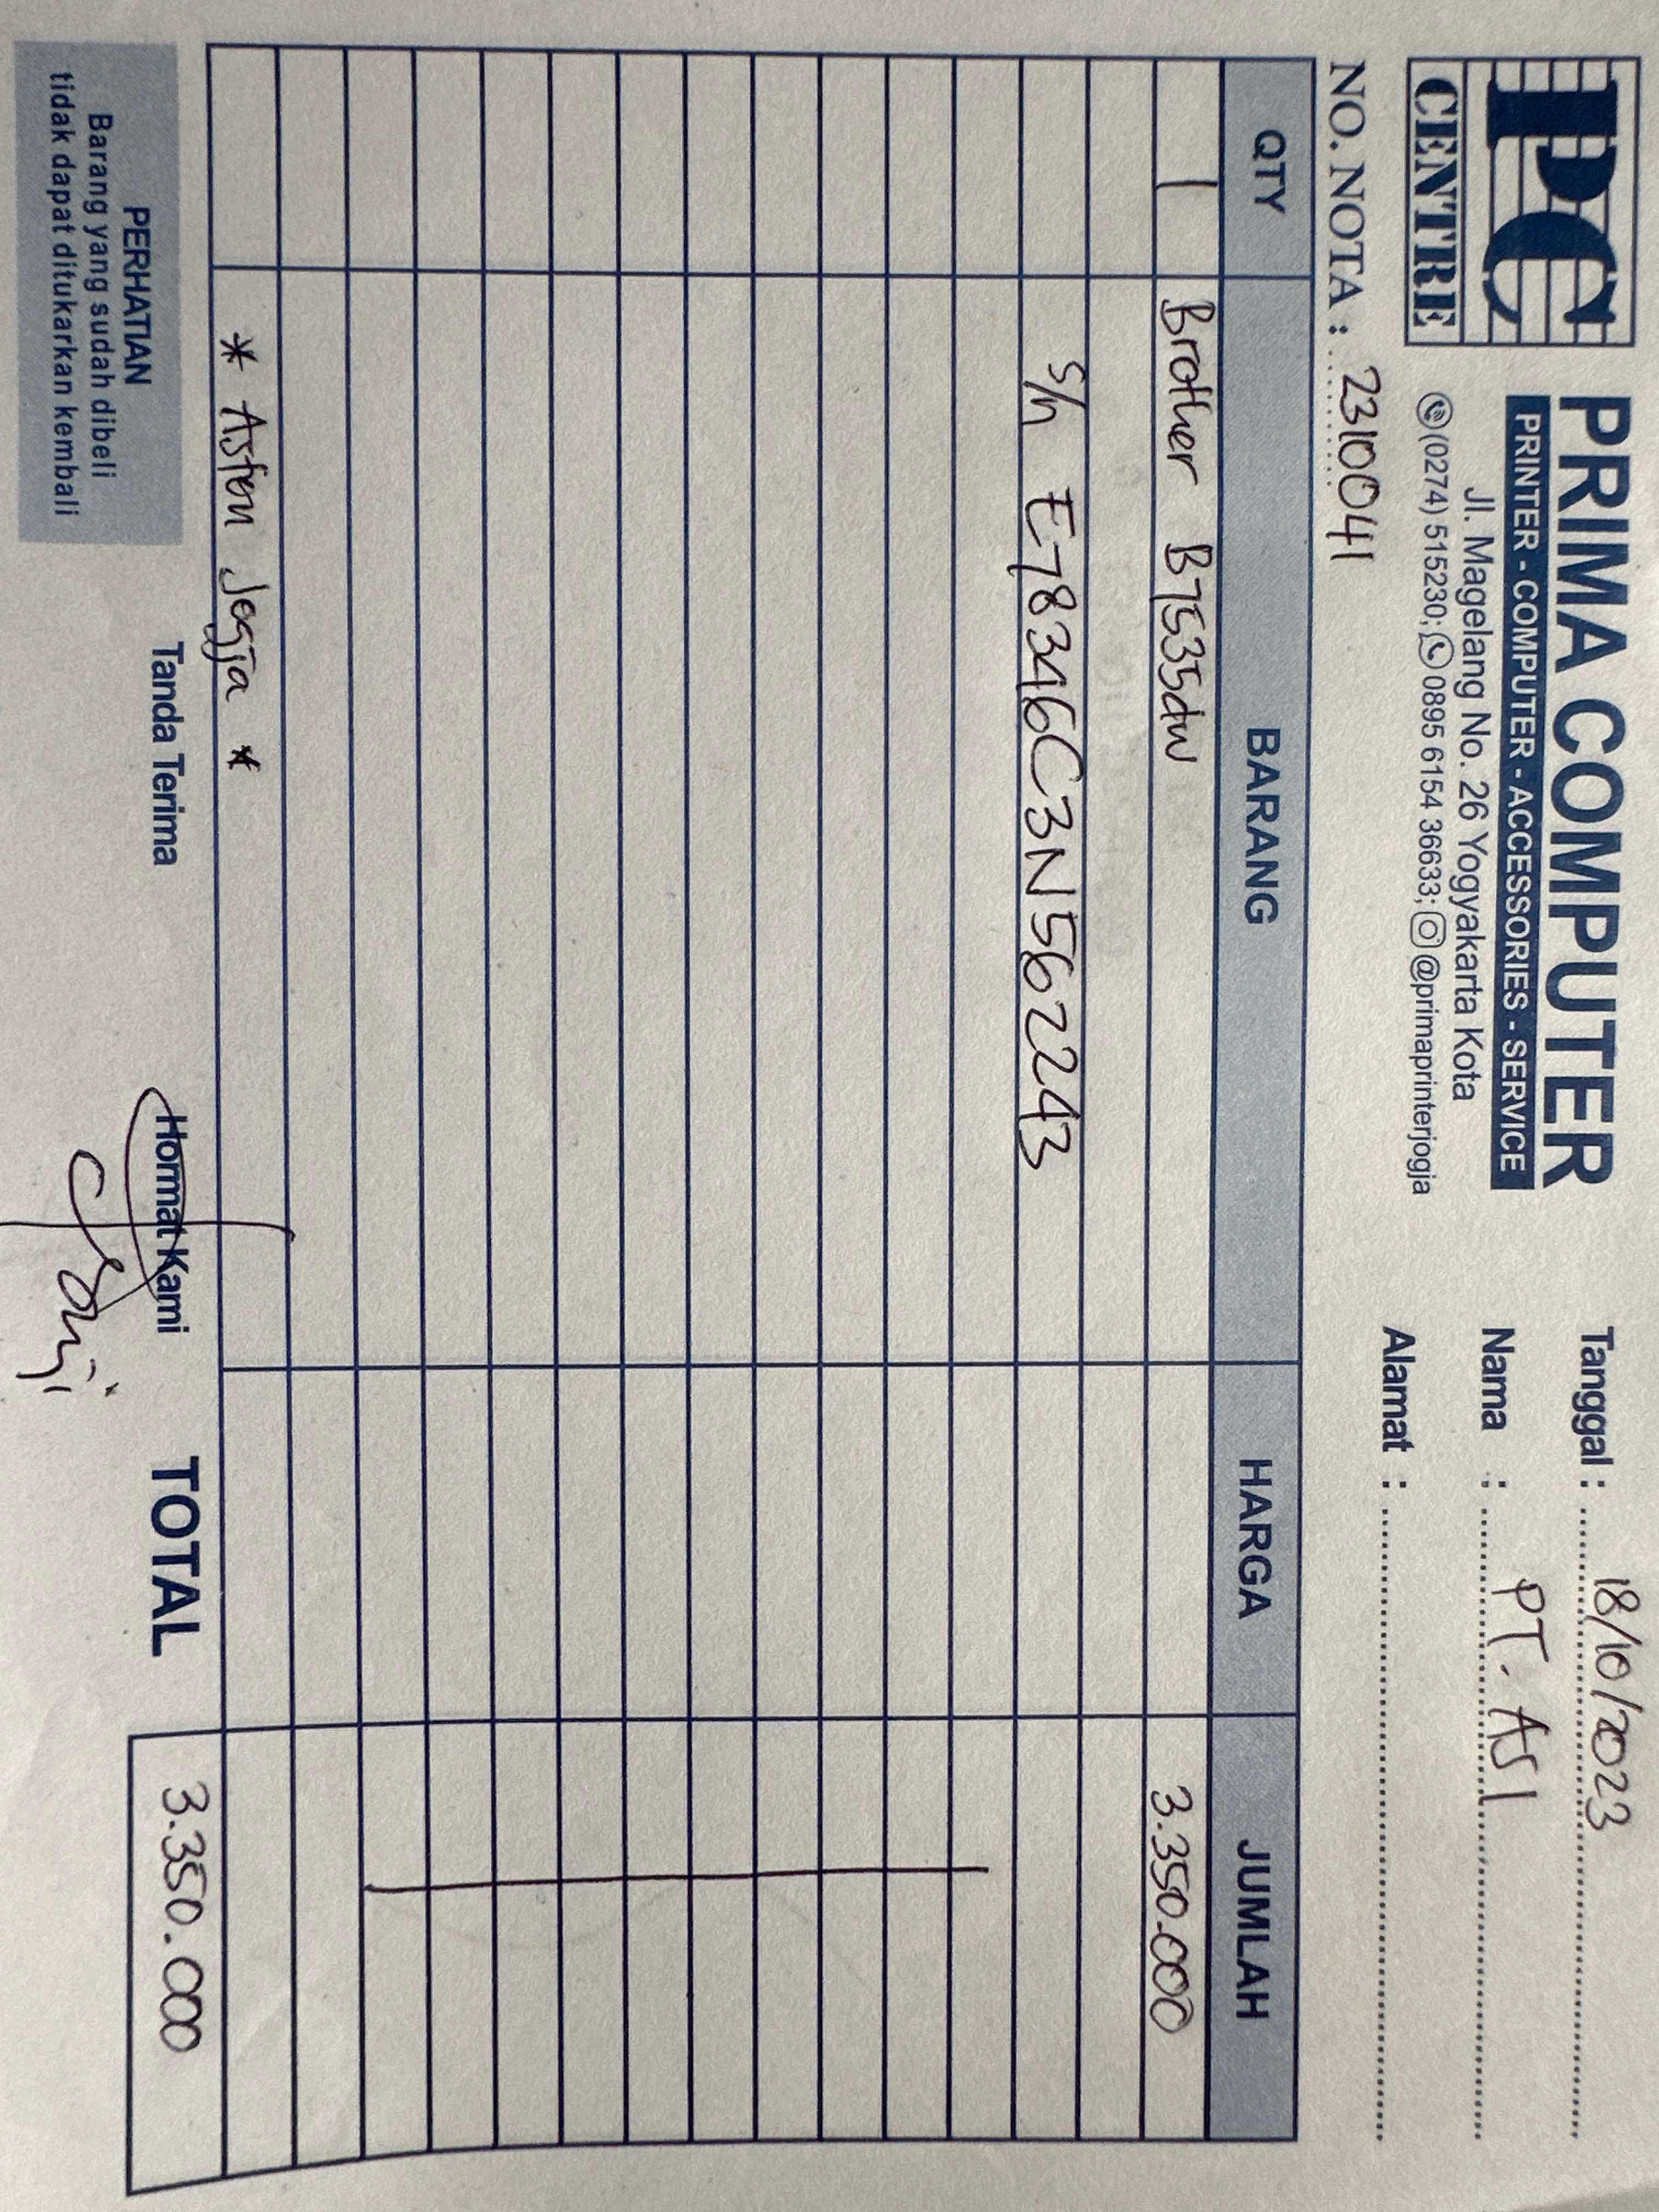 PC
CENTRE
PRIMA COMPUTER
PRINTER - COMPUTER - ACCESSORIES - SERVICE
Jl. Magelang No. 26 Yogyakarta Kota
(0274) 515230; 0895 6154 36633; @primaprinterjogja
Tanggal : 18/10/2023
Nama : PT. ASI
Alamat :
NO. NOTA : 2310041
QTY BARANG HARGA JUMLAH
1 Brother B7535dw 3.350.000
S/n E78346C3N562243
* Aston Jogja *
PERHATIAN
Barang yang sudah dibeli
tidak dapat ditukarkan kembali
Tanda Terima
Hormat Kami
TOTAL 3.350.000